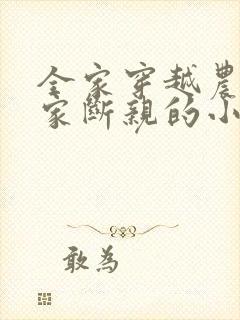 全家穿越農
家斷親的小
敢為